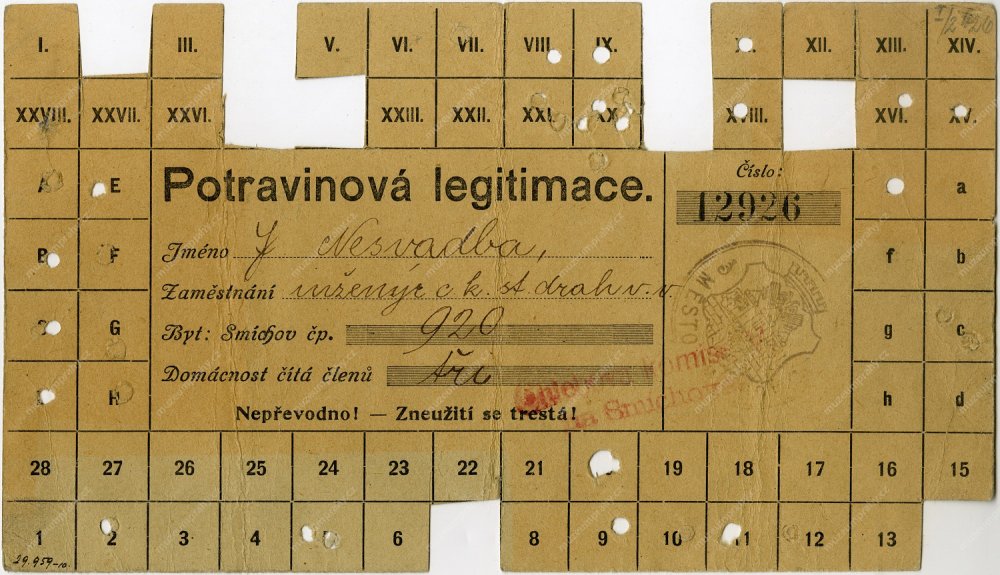 I. III. V. VI. VII. VIII. IX. XII. XIII. XIV.
XXVIII. XXVII. XXVI. XXIII. XXII. XXI. XX. XVIII. XVI. XV.
A E Potravinová legitimace. Číslo: a
12926
B F Jméno J Nesvadba, f b
Zaměstnání inženýr c k. st drah v. v.
G Byt: Smíchov čp. 920 g c
Domácnost čítá členů tři
H h d
Nepřevodno! — Zneužití se trestá!
na Smíchově
MĚSTO
28 27 26 25 24 23 22 21 19 18 17 16 15
1 2 3 4 6 8 9 10 11 12 13
29.959-10.